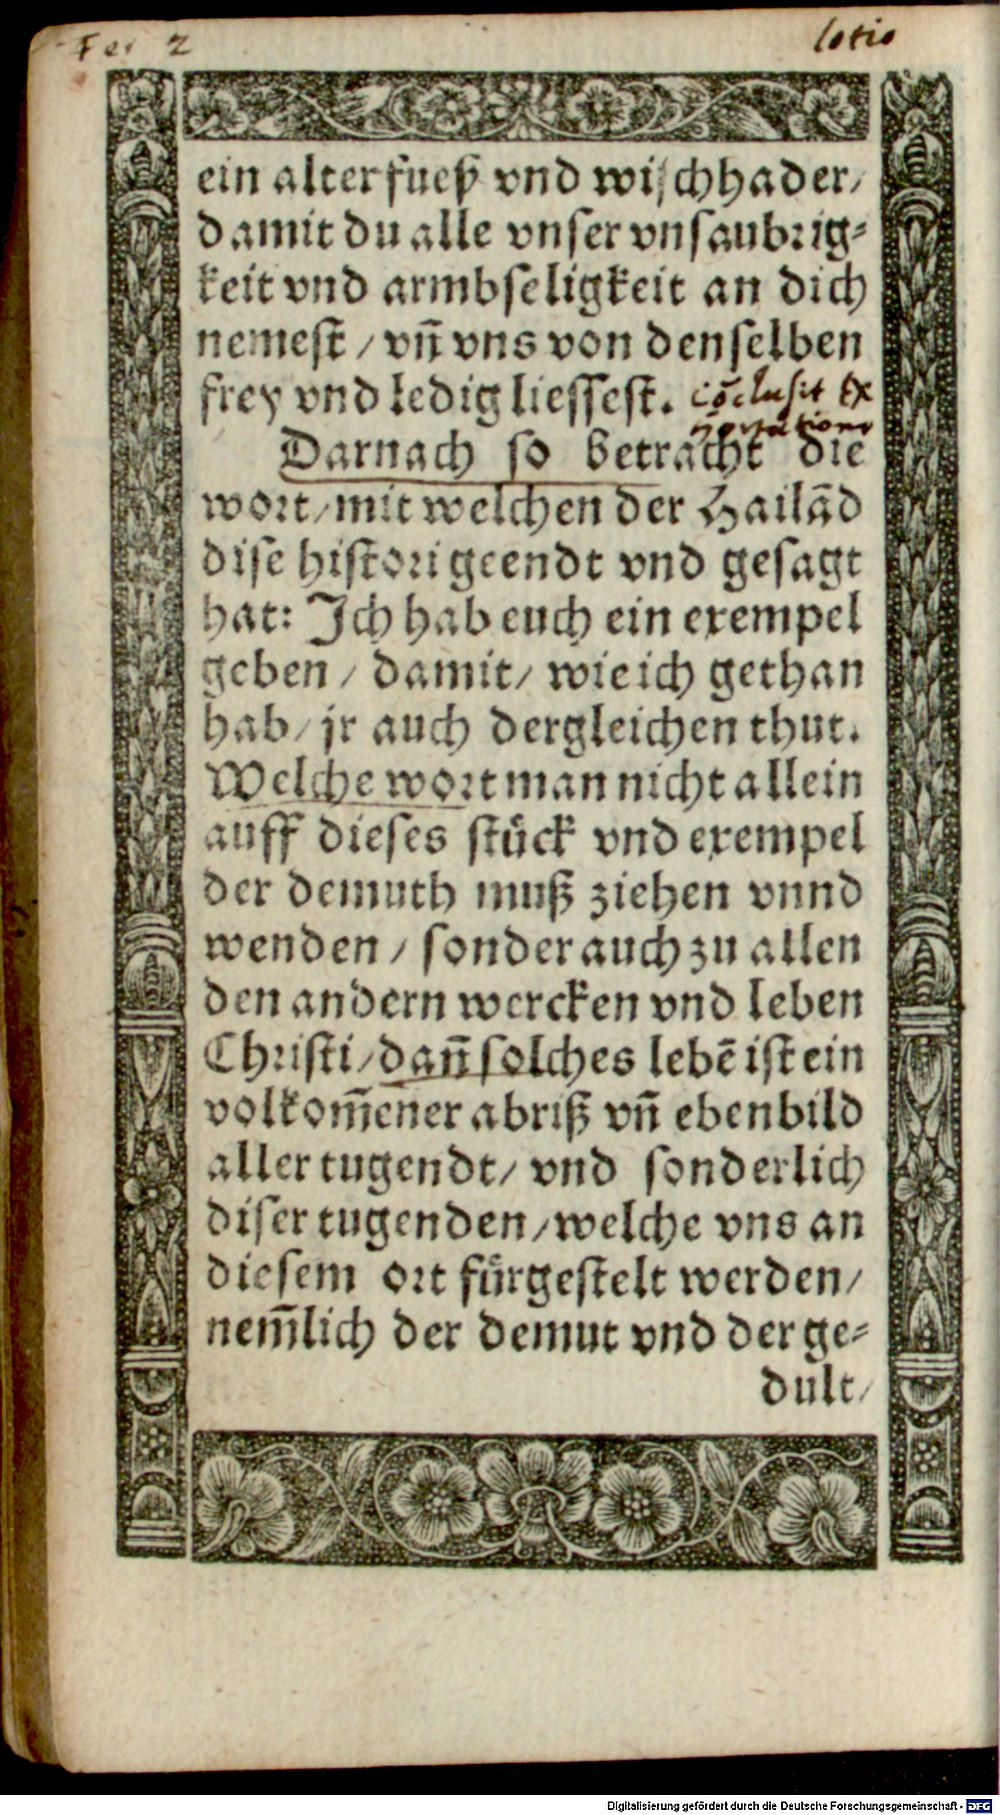 Fer 2
lotio
ein alter fueß vnd wischhader/
damit du alle vnser vnsaubrig⸗
keit vnd armbseligkeit an dich
nemest / vñ vns von denselben
frey vnd ledig liessest. cõclusit Ex
hortatione
Darnach so betracht die
wort/ mit welchen der Hailãd
dise histori geendt vnd gesagt
hat: Ich hab euch ein exempel
geben / damit/ wie ich gethan
hab/ jr auch dergleichen thut.
Welche wort man nicht allein
auff dieses stůck vnd exempel
der demuth muß ziehen vnnd
wenden / sonder auch zu allen
den andern wercken vnd leben
Christi/ dañ solches lebẽ ist ein
volkom̃ener abriß vñ ebenbild
aller tugendt/ vnd sonderlich
diser tugenden/ welche vns an
diesem ort fůrgestelt werden/
nem̃lich der demut vnd der ge⸗
dult/
Digitalisierung gefördert durch die Deutsche Forschungsgemeinschaft - DFG